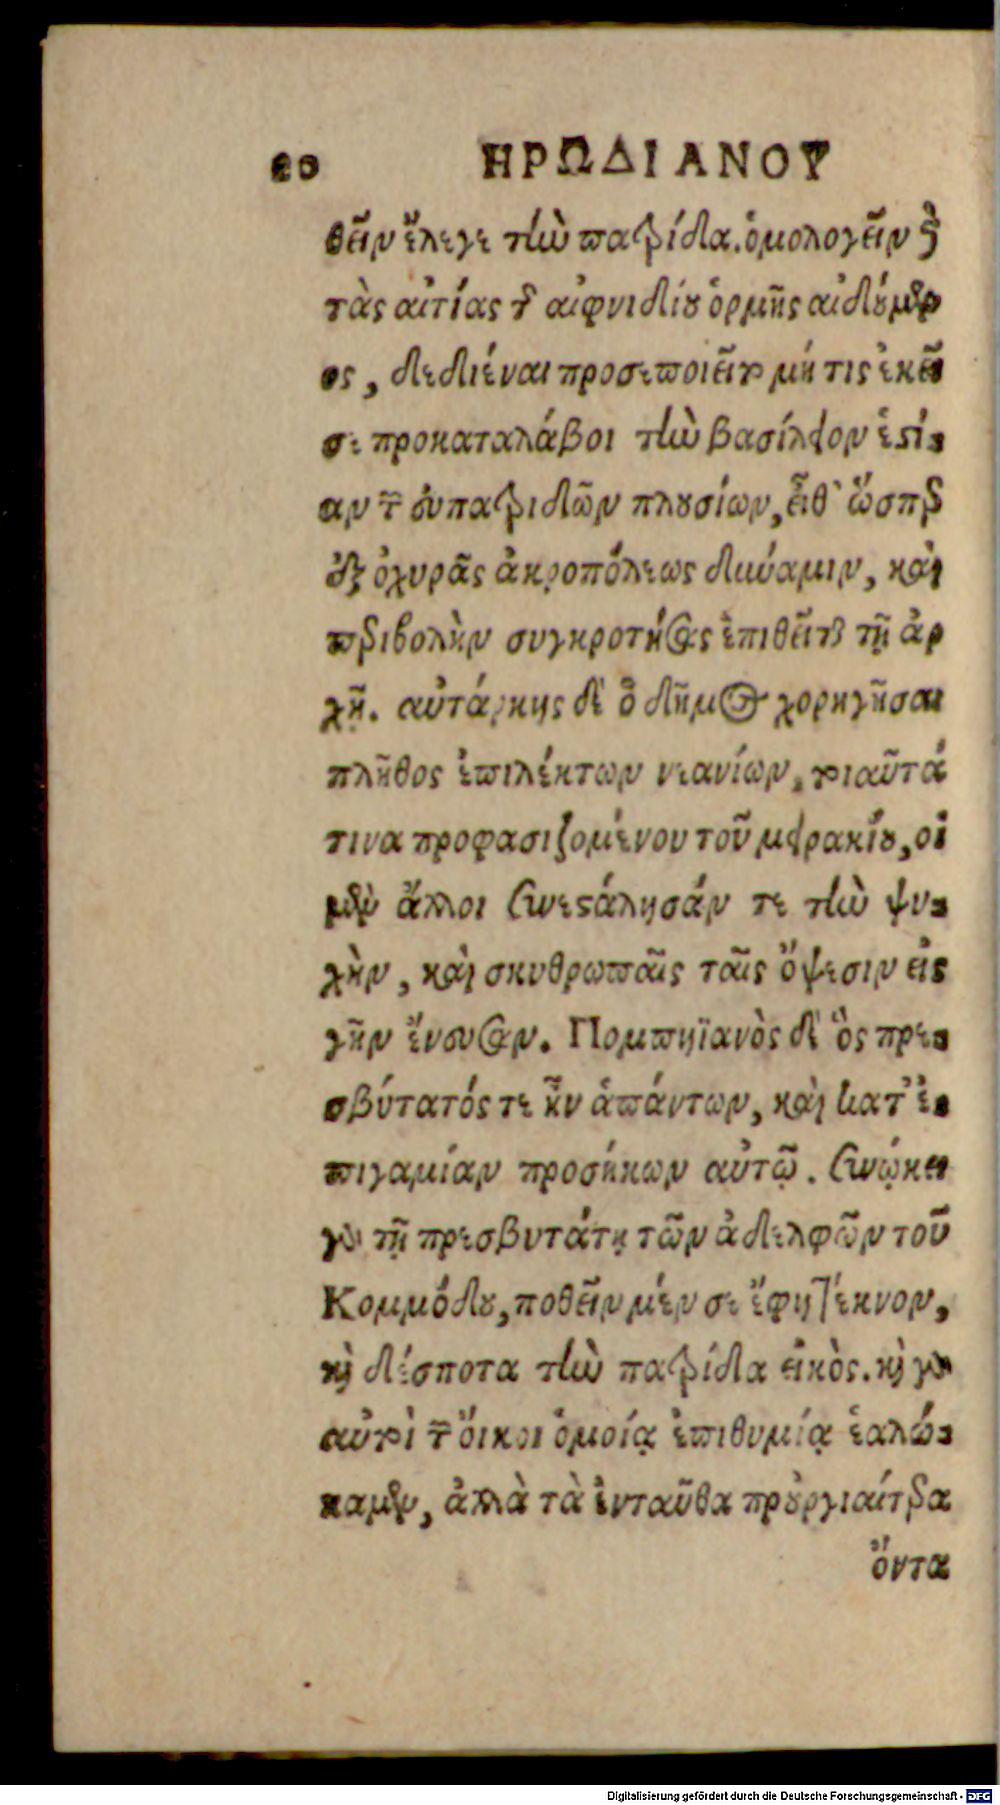 20 ΗΡΩΔΙΑΝΟΥ
θεῖν ἔλεγε τὴν πατρίδα. ὁμολογεῖν δὲ
τὰς αἰτίας τῆς αἰφνιδίου ὁρμῆς αἰδούμεν
ος, δεδιέναι προσεποιεῖτο μή τις ἐκεῖ
σε προκαταλάβοι τὴν βασίλειον ἑστί-
αν τῶν εὐπατριδῶν πλουσίων, εἶθ' ὥσπερ
ἐξ ὀχυρᾶς ἀκροπόλεως δύναμιν, καὶ
περιβολὴν συγκροτήσας ἐπιθεῖτο τῇ ἀρ
χῇ. αὐτάρκης δὲ ὁ δῆμος χορηγῆσαι
πλῆθος ἐπιλέκτων νεανίων, τοιαῦτά
τινα προφασιζομένου τοῦ μειρακίου, οἱ
μὲν ἄλλοι συνεστάλησάν τε τὴν ψυ-
χὴν, καὶ σκυθρωπαῖς ταῖς ὄψεσιν εἰς
γῆν ἔνευσαν. Πομπηϊανὸς δὲ ὃς πρε-
σβύτατός τε ἦν ἁπάντων, καὶ κατ' ἐ-
πιγαμίαν προσήκων αὐτῷ. συνῴκει
γὰρ τῇ πρεσβυτάτῃ τῶν ἀδελφῶν τοῦ
Κομμόδου, ποθεῖν μέν σε ἔφη τέκνον,
καὶ δέσποτα τὴν πατρίδα εἰκὸς. καὶ γὰρ
αὐτοὶ τῶν οἴκοι ὁμοίᾳ ἐπιθυμίᾳ ἑαλώ-
καμεν, ἀλλὰ τὰ ἐνταῦθα προὐργιαίτερα
ὄντα
Digitalisierung gefördert durch die Deutsche Forschungsgemeinschaft - DFG